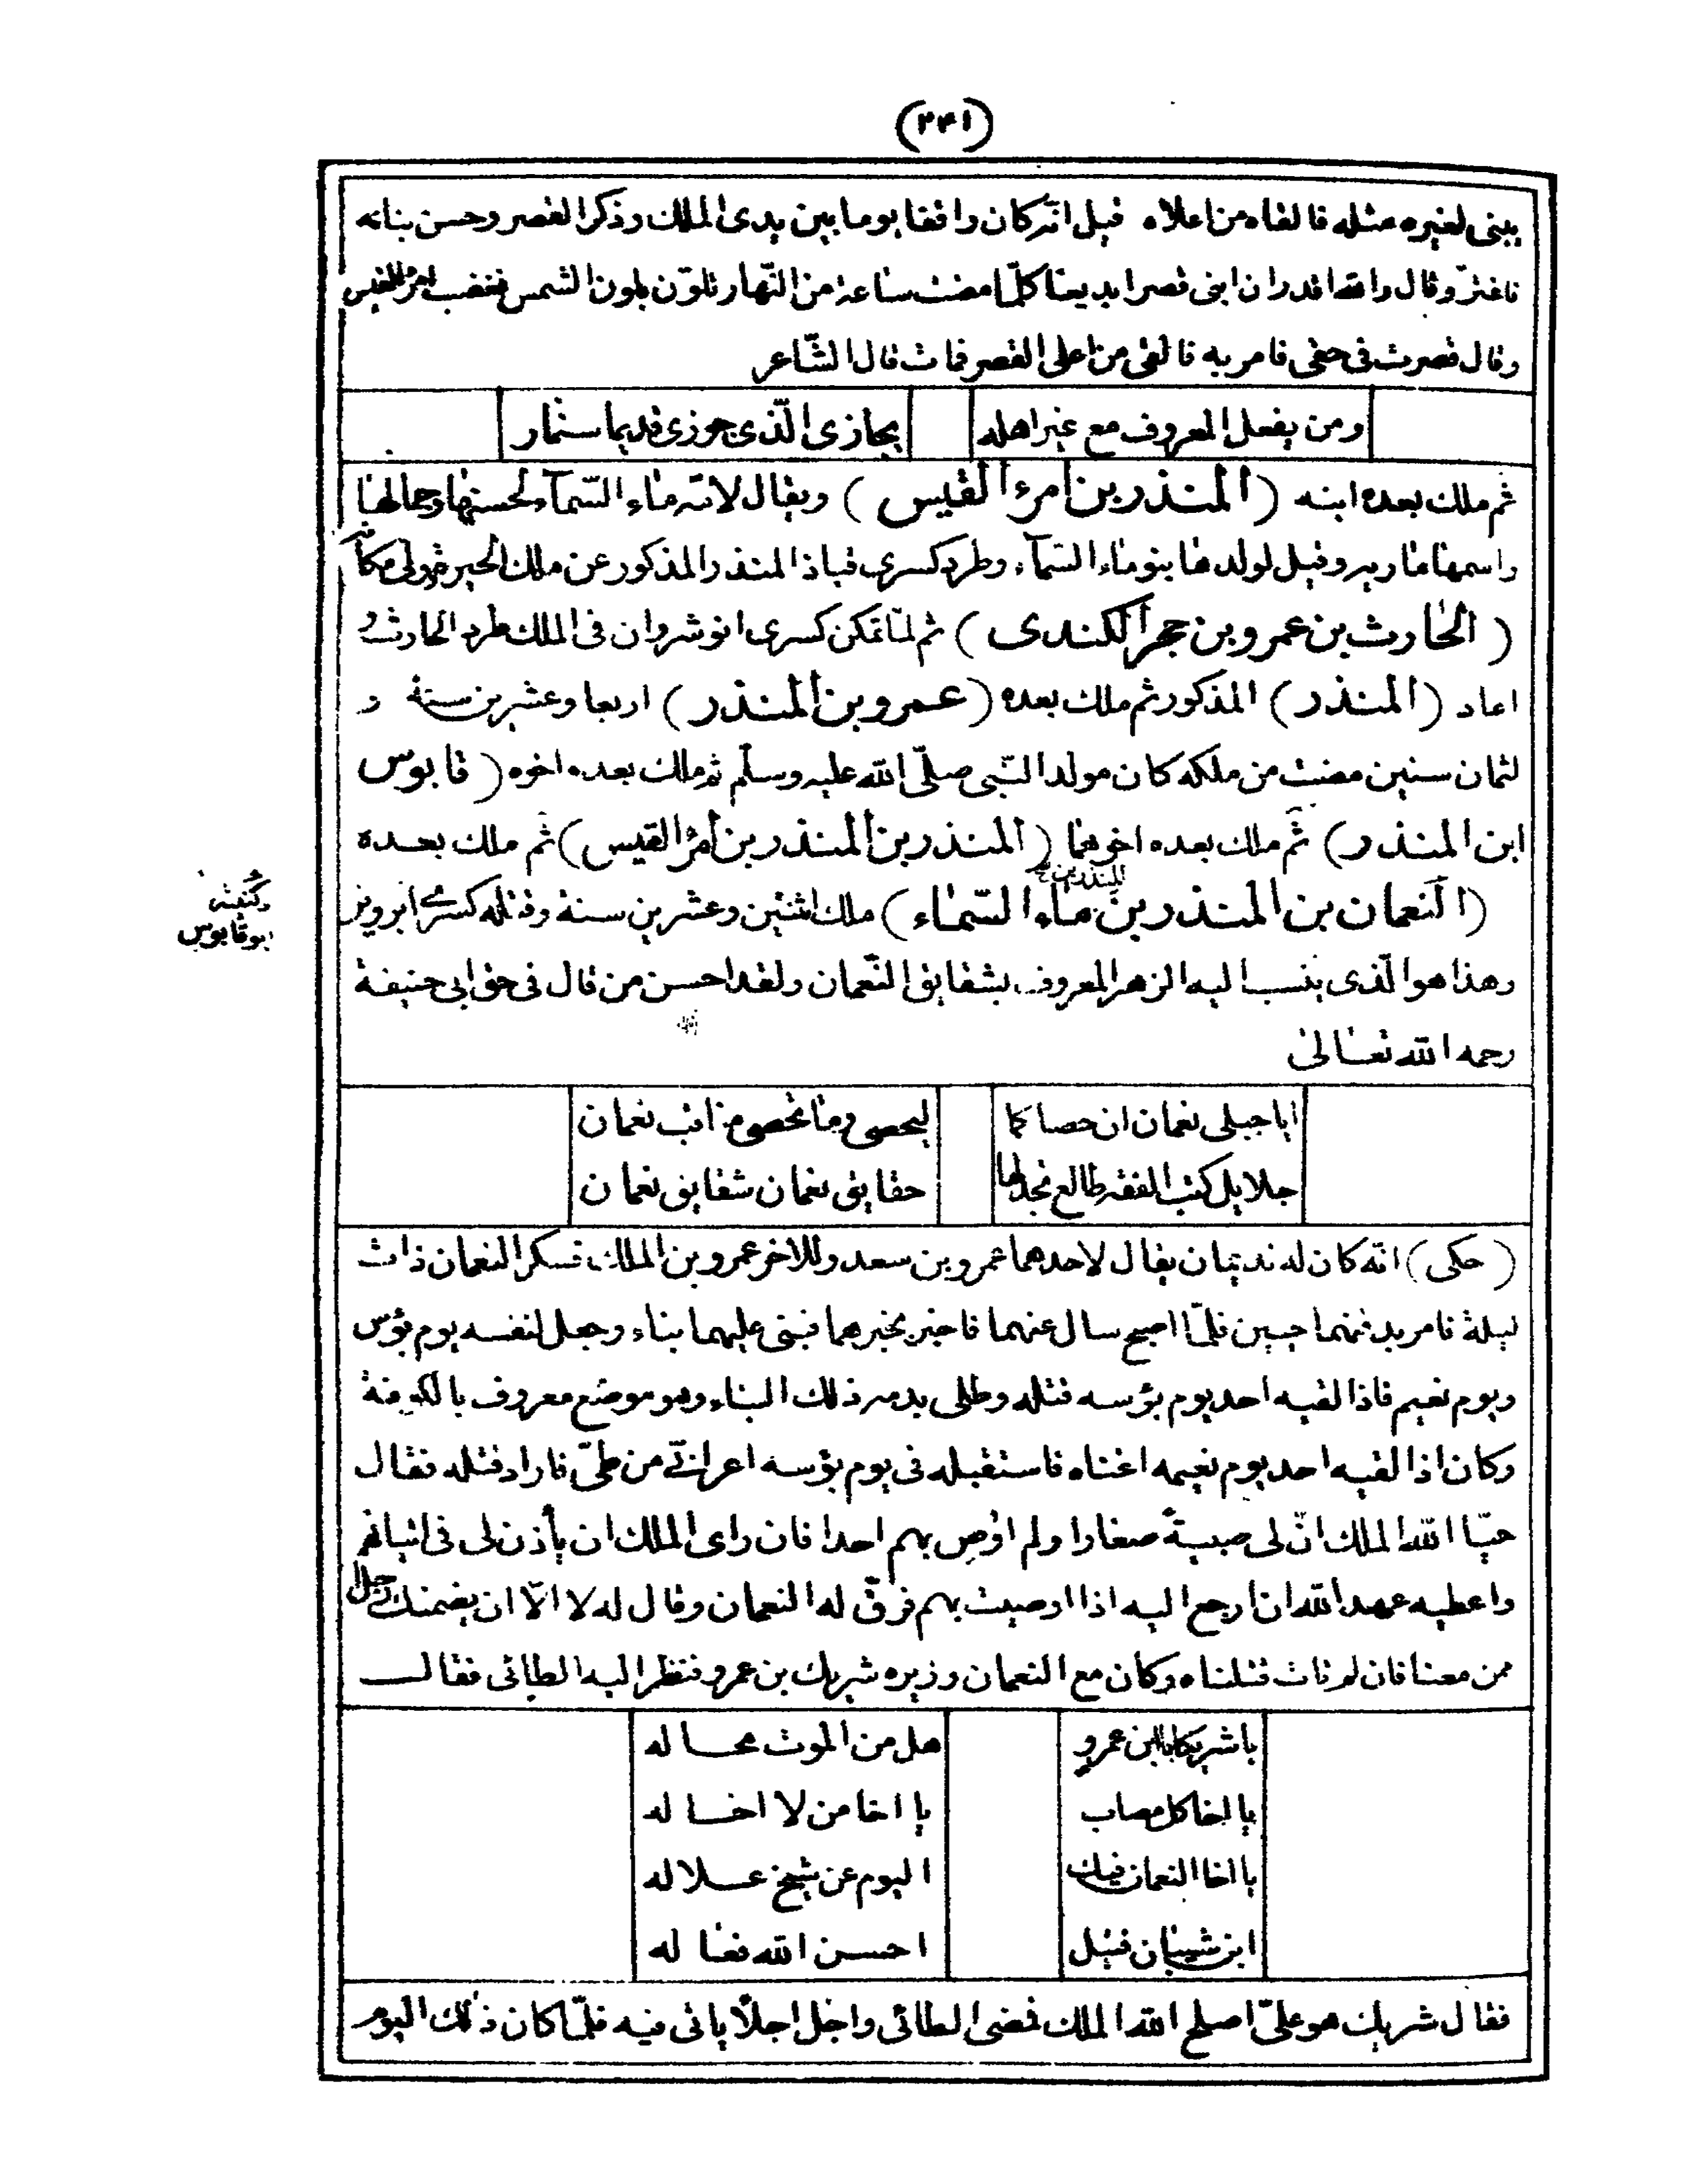 (٢٤١)
يبنى لغيره مثله فالقاه من اعلاه قيل انه كان واقفا يوما بين يدى الملك وذكر القصر وحسن بنائه
فاغتر وقال والله اقدر ان ابنى قصرا بديعا كلما مضت ساعة من النهار تلون بلون الشمس فغضب امرؤ القيس
وقال قصرت فى حقى فامر به فالقى من اعلى القصر فمات قال الشاعر
ومن يفعل المعروف مع غير اهله يجازى الذى جوزى قديما سنمار
ثم ملك بعده ابنه (المنذر بن امرء القيس) ويقال لامه ماء السمآء لحسنها وجمالها
واسمها ماريه وقيل لولدها بنو ماء السمآء وطرد كسرى قباذ المنذر المذكور عن ملك الحيرة وولى مكانه
(الحارث بن عمرو بن حجر الكندى) ثم لما تمكن كسرى انوشروان فى الملك طرد الحارث و
اعاد (المنذر) المذكور ثم ملك بعده (عمرو بن المنذر) اربعا وعشرين سنة و
لثمان سنين مضت من ملكه كان مولد النبى صلى الله عليه وسلم ثم ملك بعده اخوه (قابوس
ابن المنذر) ثم ملك بعده اخوهما (المنذر بن المنذر بن امرؤ القيس) ثم ملك بعده
(النعمان بن المنذر بن المنذر بن ماء السماء) ملك اثنتين وعشرين سنة وقتله كسرى ابرويز
وكنيته
ابو قابوس
وهذا هو الذى ينسب اليه الزهر المعروف بشقايق النعمان ولقد احسن من قال فى حق ابى حنيفة
رحمه الله تعالى
ايا جبلى نعمان ان حصاكما ليحصى وما تحصى مناقب نعمان
جلايل كتب الفقه طالع تجد لها حقايق نعمان شقايق نعمان
(حكى) انه كان له نديمان يقال لاحدهما عمرو بن سعد وللاخر عمرو بن الملك فسكر النعمان ذات
ليلة فامر بدفنهما حيين فلما اصبح سال عنهما فاخبر بخبرهما فبنى عليهما بناء وجعل لنفسه يوم بؤس
ويوم نعيم فاذا لقيه احد يوم بؤسه قتله وطلى بدمه ذلك البناء وهو موضع معروف بالكوفة
وكان اذا لقيه احد يوم نعيمه اغناه فاستقبله فى يوم بؤسه اعرابى من طى فاراد قتله فقال
حيا الله الملك ان لى صبية صغارا ولم اوص بهم احدا فان راى الملك ان يأذن لى فى اتيانهم
واعطيه عهد الله ان ارجع اليه اذا اوصيت بهم فرق له النعمان وقال له لا الا ان يضمنك رجل
ممن معنا فان لم تات قتلناه وكان مع النعمان وزيره شريك بن عمرو فنظر اليه الطائى فقال
يا شريكا يا ابن عمرو هل من الموت محاله
يا اخا كل مصاب يا اخا من لا اخا له
يا اخا النعمان فيك اليوم عن شيخ علاله
ابن شيبان قبيل احسن الله فعاله
فقال شريك هو على اصلح الله الملك فمضى الطائى واجل اجلا ياتى فيه فلما كان ذلك اليوم